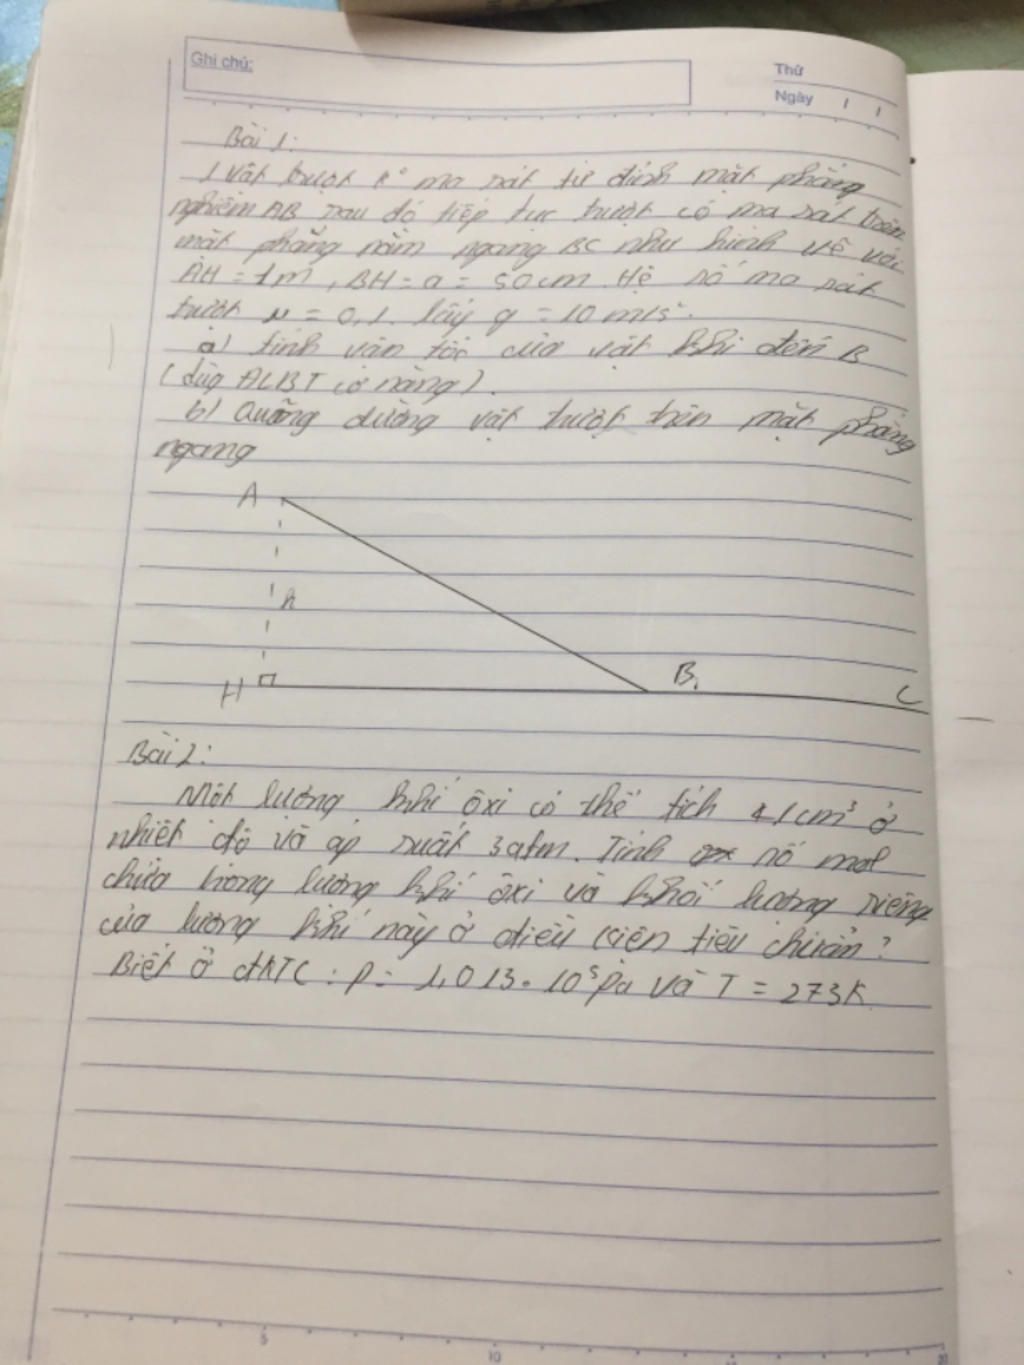 Ghi chú:
Thứ
Ngày / /
Bài 1:
1 vật trượt k° ma sát từ đỉnh mặt phẳng
nghiêm AB sau đó tiếp tục trượt có ma sát trên
mặt phẳng nằm ngang BC như hình vẽ với
AH = 1m, BH = a = 50cm. Hệ số ma sát
trượt μ = 0,1. lấy g = 10 m/s².
a) tính vận tốc của vật khi đến B
(dùg ĐLBT cơ năng).
b) Quãng đường vật trượt trên mặt phẳng
ngang
A
h
H
B
C
Bài 2:
Một lượng khí ôxi có thể tích 41cm³ ở
nhiệt độ và áp suất 3atm. Tính số mol
chứa trong lượng khí ôxi và khối lượng riêng
của lượng khí này ở điều kiện tiêu chuẩn?
Biết ở đktc: p = 1,013. 10⁵ Pa và T = 273K.
5
10